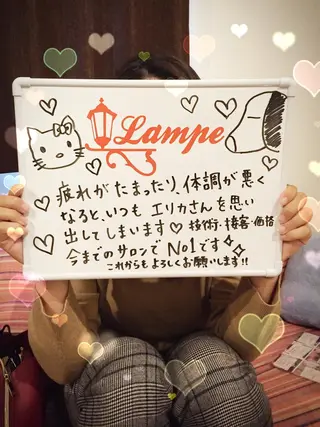 Lampe
疲れがたまったり、体調が悪く
なると、いつも エリカさんを思い
出してしまいます♡ 技術・接客・価格
今までのサロンで No1です
これからも よろしくお願いします!!